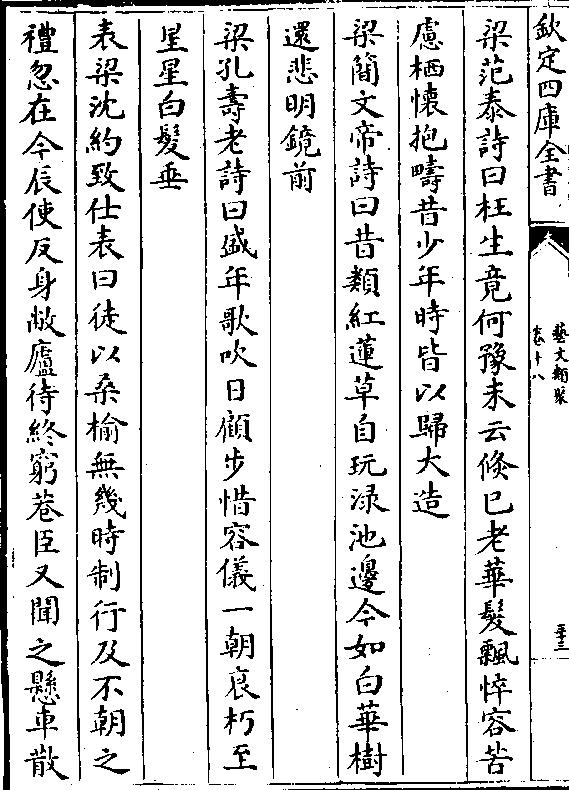 欽定四庫全書
藝文類聚
卷十八
三十三
梁范泰詩曰枉生竟何豫未云倐已老華髮飄悴容苦
慮栖懷抱疇昔少年時皆以歸大造
梁簡文帝詩曰昔類紅蓮草自玩渌池邊今如白華樹
還悲明鏡前
梁孔壽老詩曰盛年歌吹日顧步惜容儀一朝衰朽至
星星白髮垂
表梁沈約致仕表曰徒以桑榆無幾時制行及不朝之
禮忽在今辰使反身敝廬待終窮巷臣又聞之懸車散